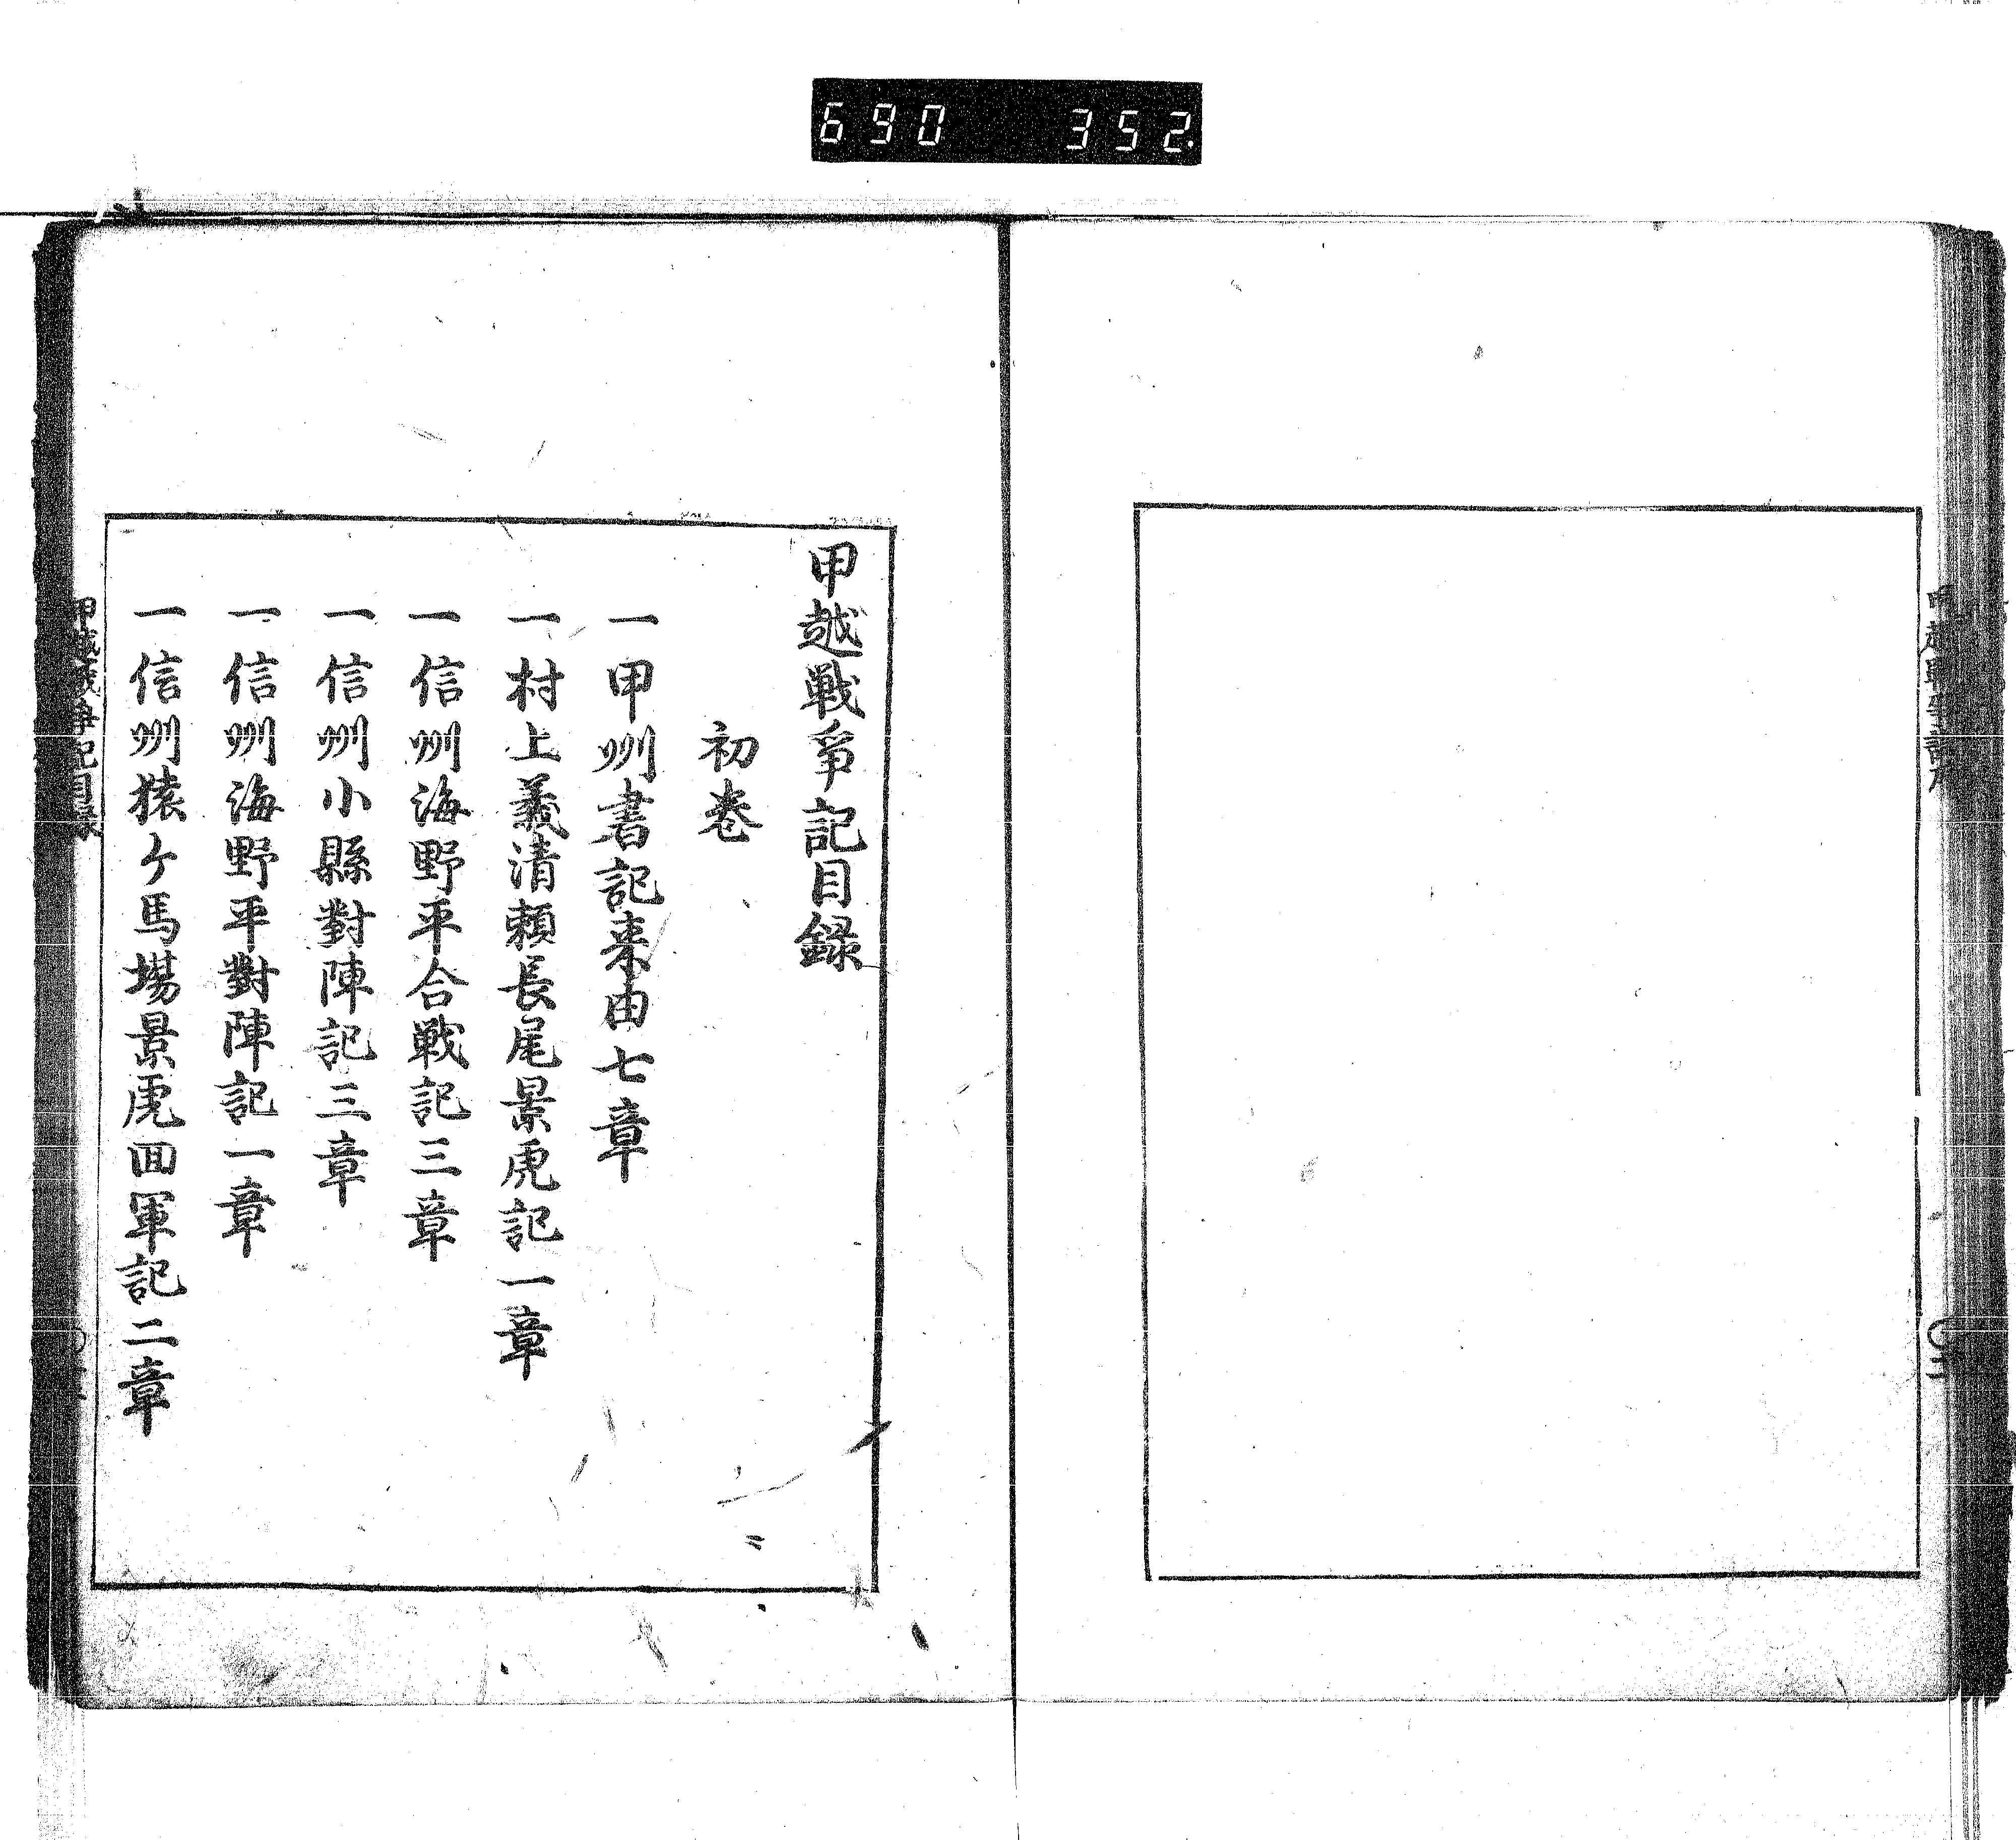 690 352
甲越戦争記序
甲越戦爭記目録
初巻
一甲州書記来由七章
一村上義清頼長尾景虎記一章
一信州海野平合戦記三章
一信州小縣對陣記三章
一信州海野平對陣記一章
一信州猿ケ馬場景虎囬軍記二章
甲越戦争記目録